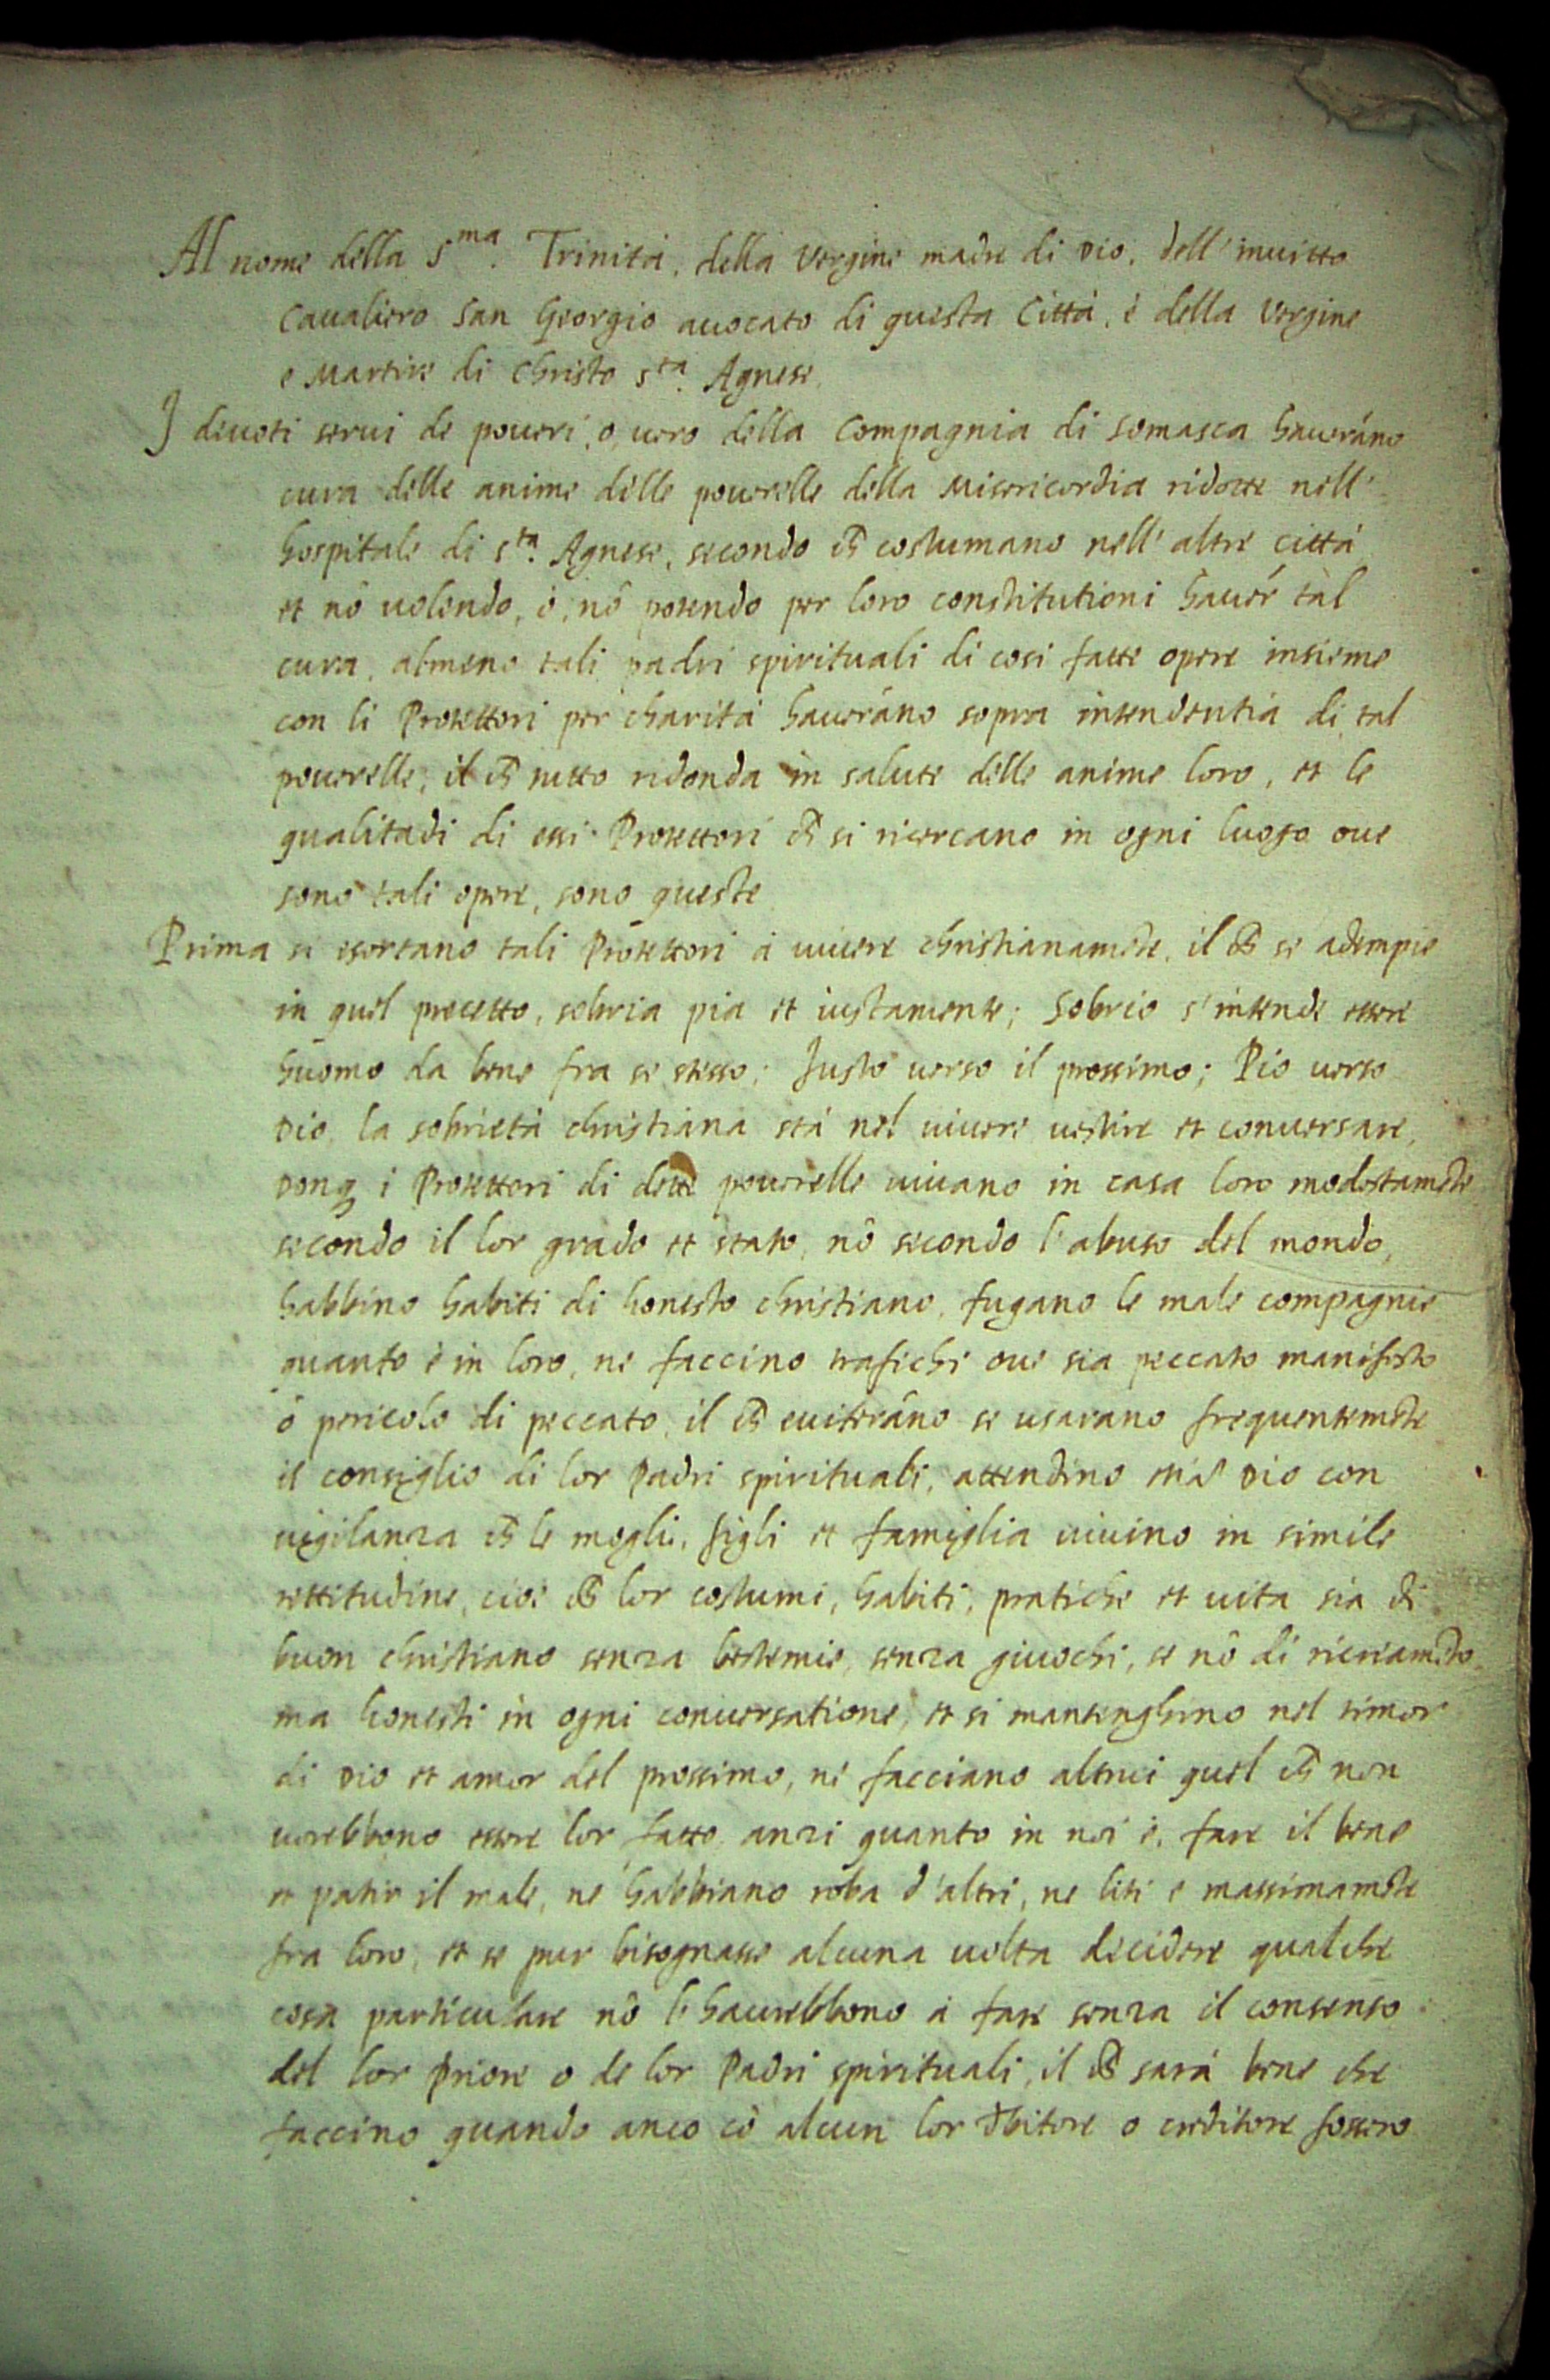 Al nome della Sma. Trinità, della Vergine madre di Dio, dell'inuitto
Caualiero San Georgio auocato di questa Città, è della Vergine
e Martire di Christo sta. Agnese.
J deuoti serui de poueri, o, uero della Compagnia di Somasca haueràno
cura delle anime delle pouerelle della Misericordia ridotte nell'
hospitale di sta. Agnese, secondo ch̃ costumano nell'altre città
et nõ uolendo, ò, nõ potendo per loro constitutioni hauér tal
cura, almeno tali padri spirituali di cosi fatte opere insieme
con li Protettori per charità hauerãno sopra intendentia di tal
pouerelle; il ch̃ tutto ridonda in salute delle anime loro, et le
qualitadi di essi Protettori ch̃ si ricercano in ogni luogo oue
sono tali opere, sono queste
Prima si esortano tali Protettori à uiuere christianamẽte, il ch̃ se adempie
in quel precetto, sobria pia et iustamente; Sobrio s'intende essere
huomo da bene fra se stesso; Justo uerso il prossimo; Pio uerso
Dio. la sobrietà christiana stà nel uiuere uestire et conuersare,
Donq i Protettori di dette pouerelle uiuano in casa loro modestamẽte
secondo il lor grado et stato, nõ secondo l'abuso del mondo,
habbino habiti di honesto christiano, fugano le male compagnie
quanto è in loro, ne faccino trafichi oue sia peccato manifesto
ò pericolo di peccato, il ch̃ euiterãno se usarano frequentemẽte
il consiglio di lor Padri spirituali, attendino Dio con
uigilanza ch̃ le moglie, figli et famiglia uiuino in simile
rettitudine, cioè ch̃ lor costumi, habiti, pratiche et uita sia di
buon christiano senza bestemie, senza giuochi, se nõ di ricreamẽto
ma honesti in ogni conuersatione, et si mantenghino nel timor
di Dio et amor del prossimo, ne facciano altrui quel ch̃ non
uorebbono essere lor fatto, anzi quanto in noi è, fare il bene
et patir il male, ne habbiano roba d'altri, ne liti e massimamẽte
fra loro, et se pur bisognasse alcuna uolta decidere qualche
cosa particulare nõ l'haurebbono à fare senza il consenso
del lor Priore o de lor Padri spirituali, il ch̃ sarà bene che
faccino quando anco cõ alcun lor debitore o creditore fossero